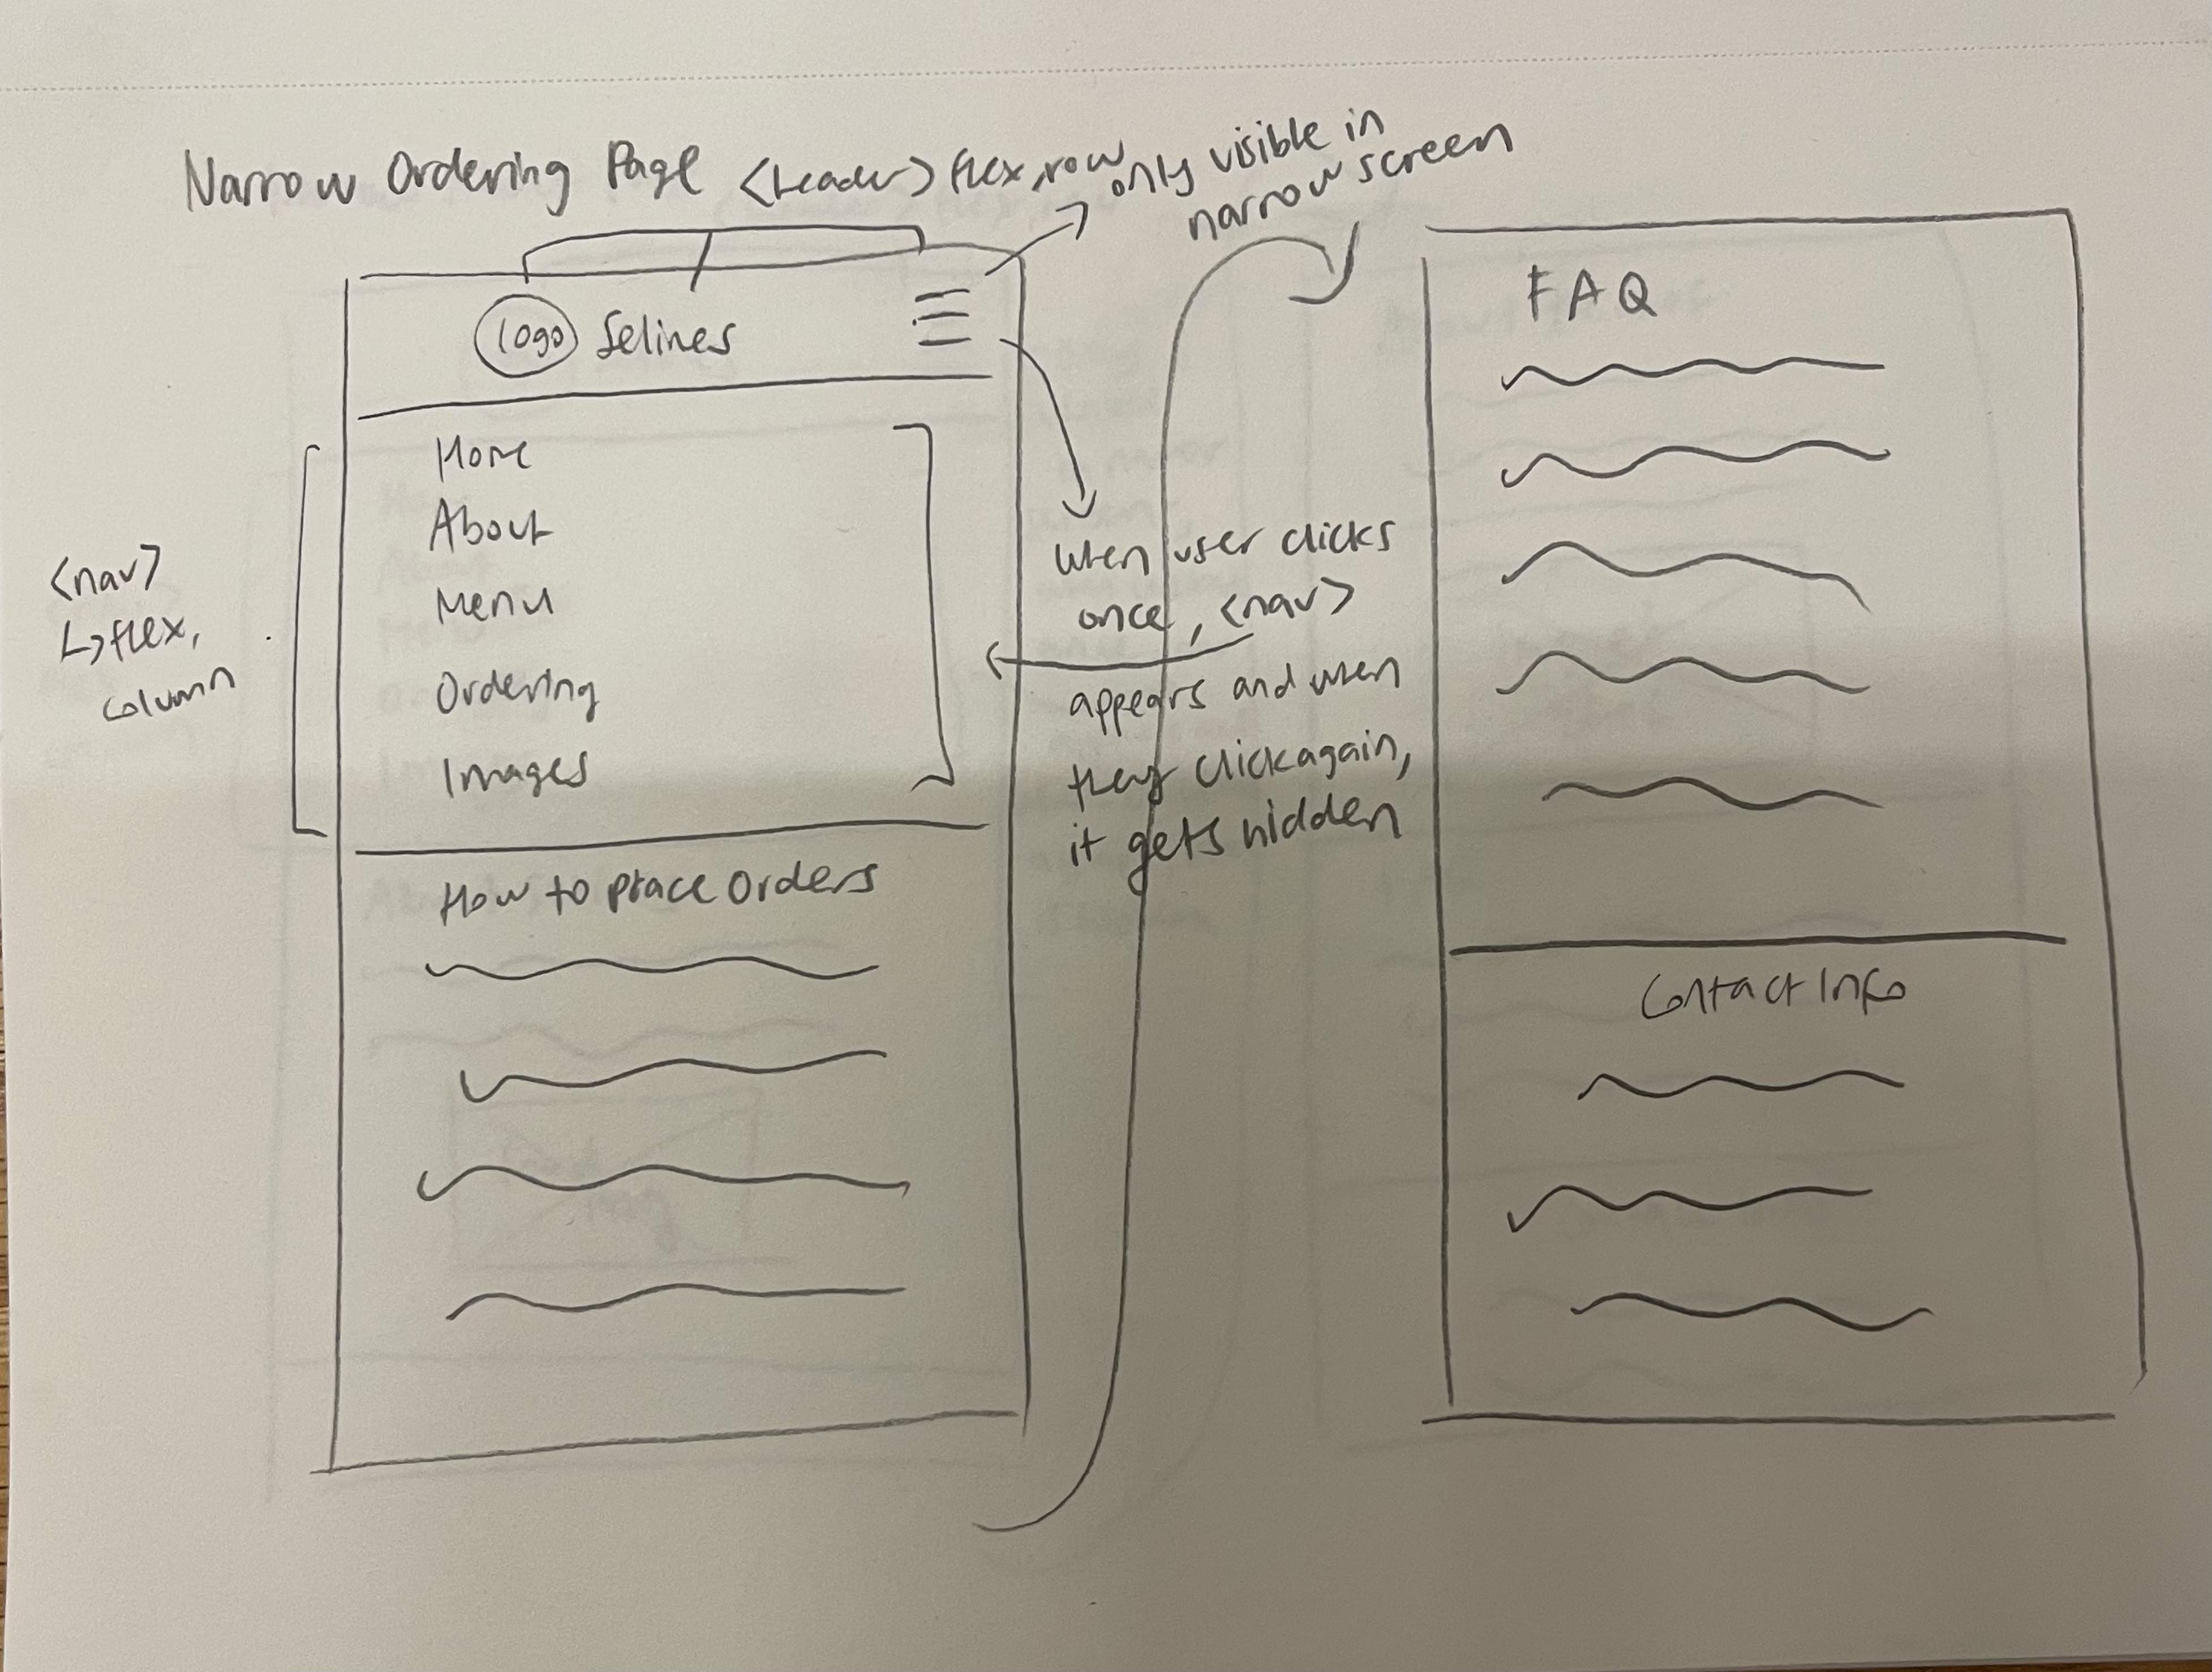 Narrow Ordering Page <header> flex, row
only visible in
narrow screen
logo Selines
Home
About
Menu
Ordering
Images
<nav>
↳ flex,
column
when user clicks
once, <nav>
appears and when
they click again,
it gets hidden
How to place Orders
FAQ
Contact Info